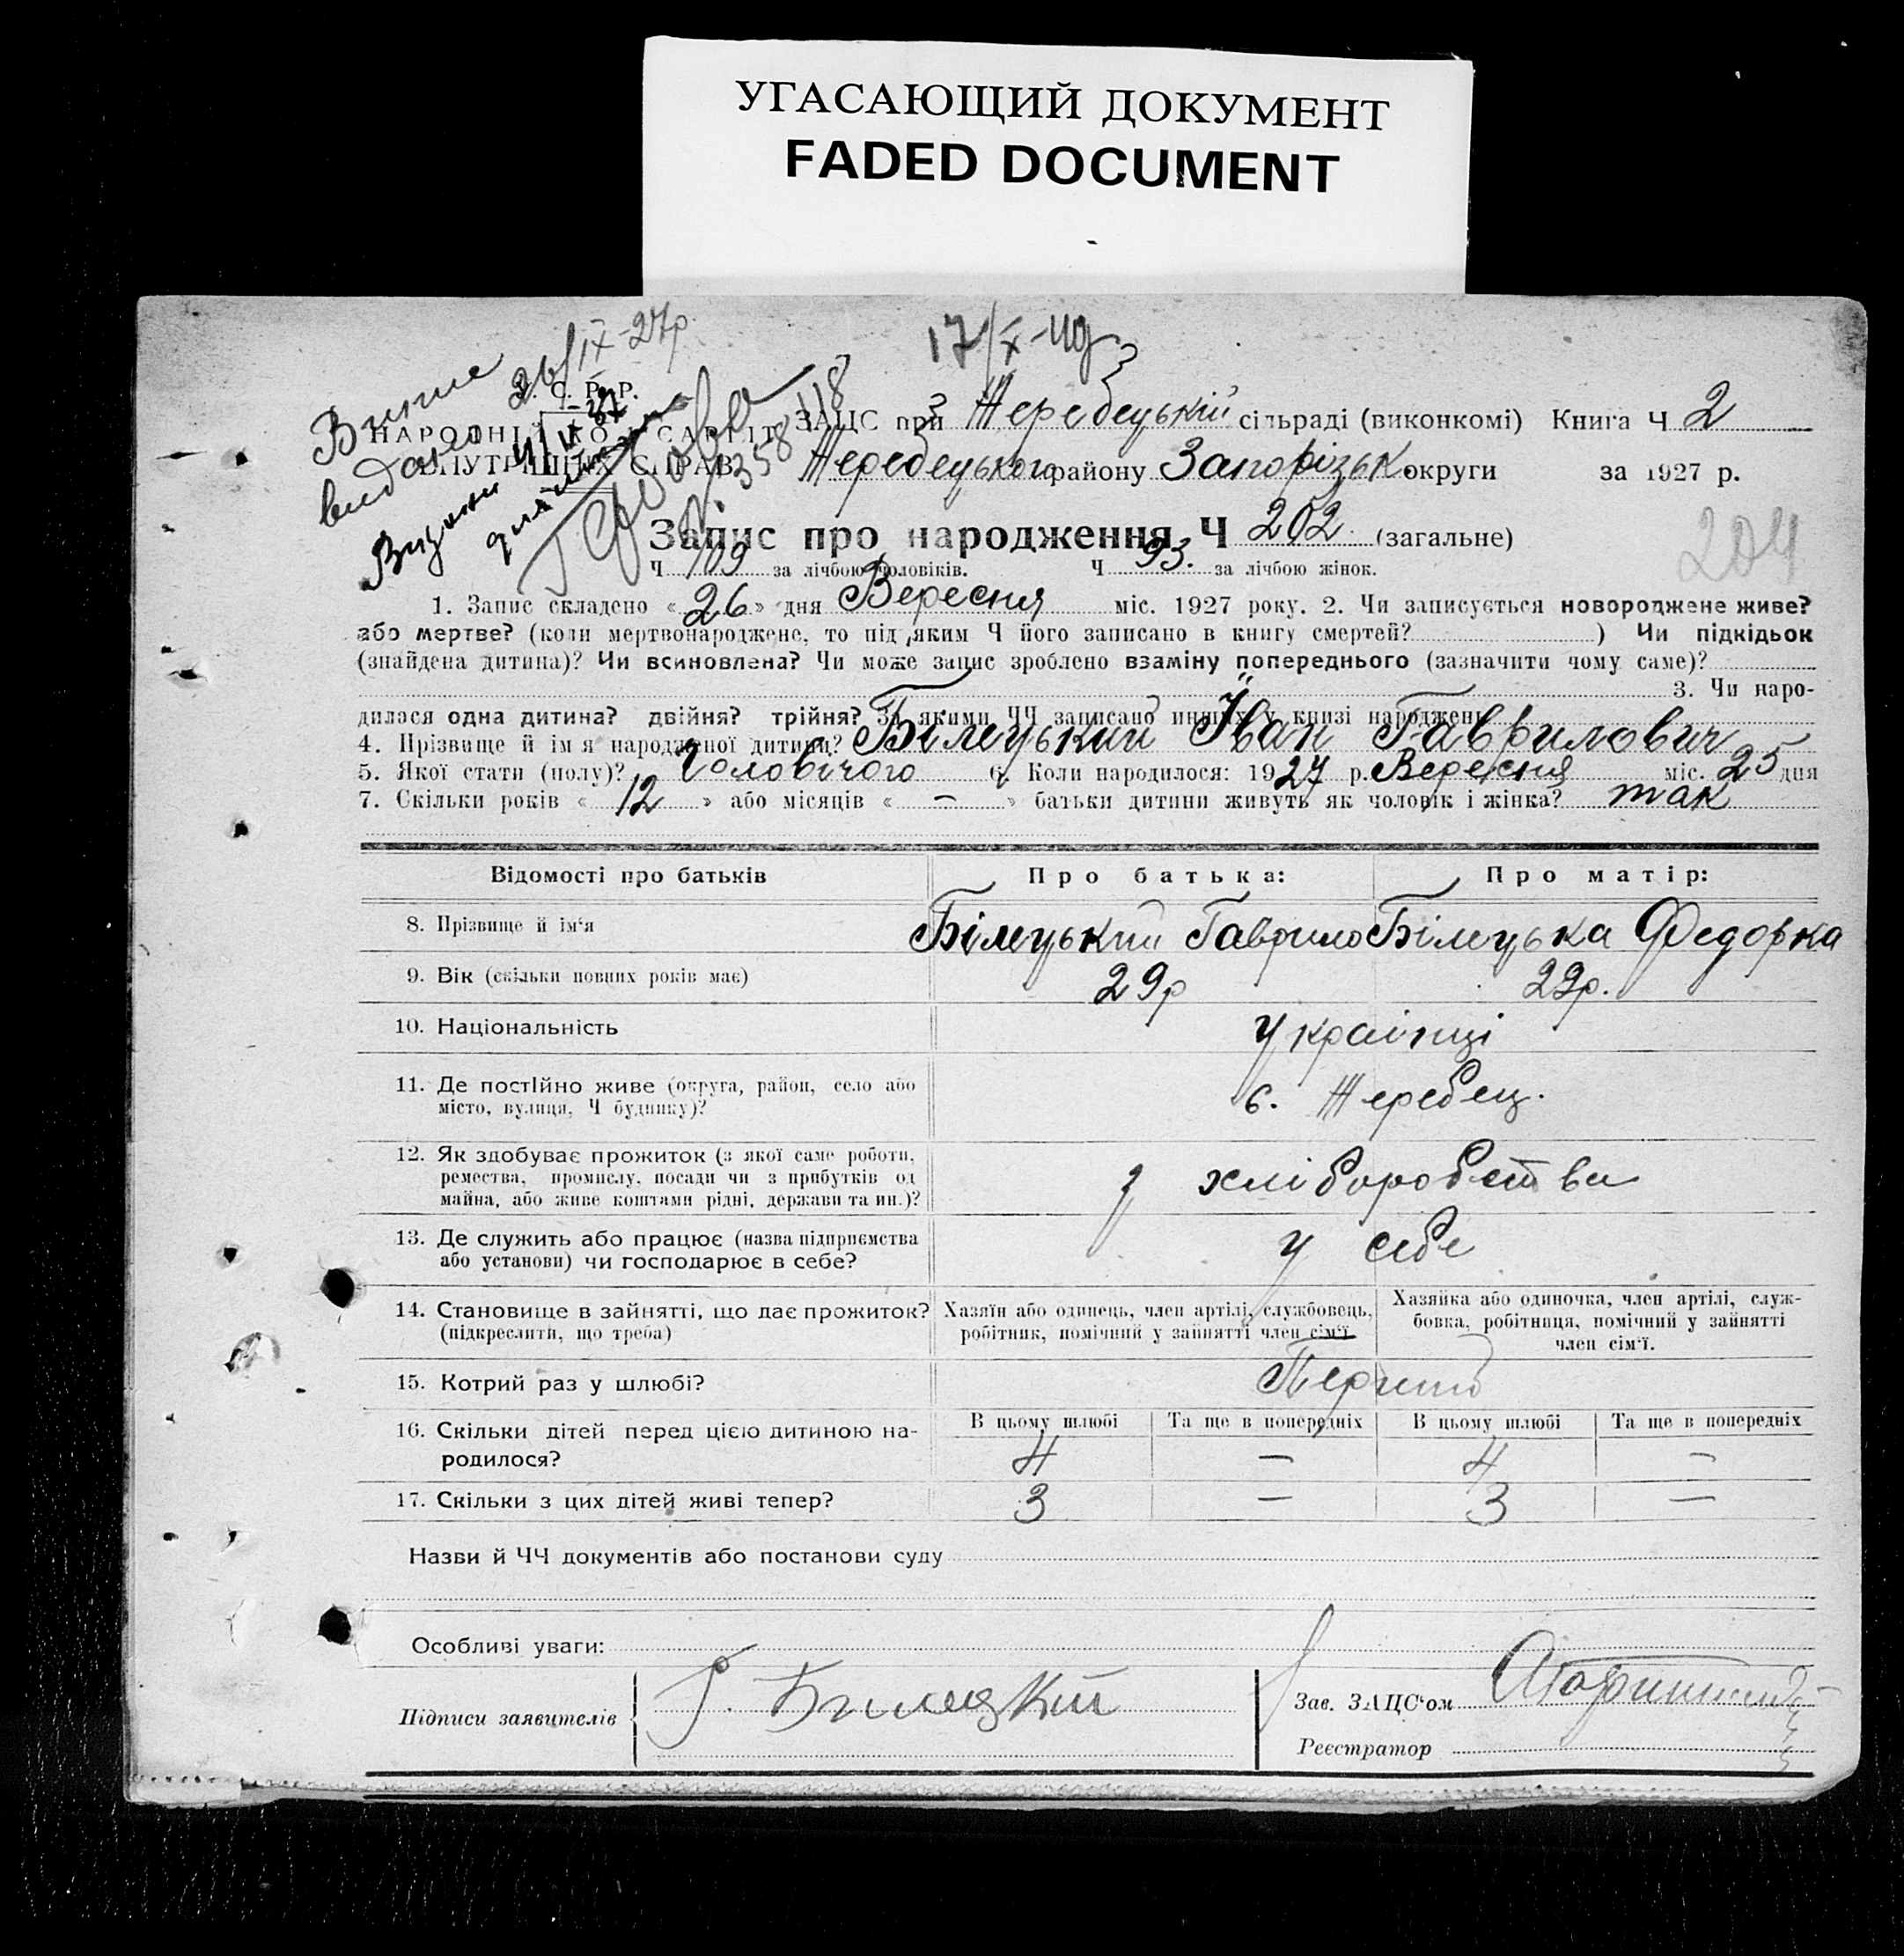 УГАСАЮЩИЙ ДОКУМЕНТ
FADED DOCUMENT
26/IX-27р.
17/X-
Випис
видано
С. Р. Р.
НАРОДНІЙ
СПРАВ
358118
ЗАЦС при Жеребецькій сільраді (виконкомі) Книга Ч 2
Жеребецького району Запорізьк. округи за 1927 р.
Запис про народження Ч 202 (загальне)
204
Ч 109 за лічбою чоловіків. Ч 93. за лічбою жінок.
1. Запис складено «26» дня Вересня міс. 1927 року. 2. Чи записується новороджене живе?
або мертве? (коли мертвонароджене, то під яким Ч його записано в книгу смертей? ) Чи підкідьок
(знайдена дитина)? Чи всиновлена? Чи може запис зроблено взаміну попереднього (зазначити чому саме)?
3. Чи наро-
дилася одна дитина? двійня? трійня? За якими ЧЧ записано инших у книзі народжень
4. Прізвище й ім я народженої дитини? Білецький Іван Гаврилович
5. Якої стати (полу)? Чоловічого 6. Коли народилося: 1927 р. Вересня міс. 25 дня
7. Скільки років « 12 » або місяців « – » батьки дитини живуть як чоловік і жінка? так
Відомості про батьків Про батька: Про матір:
8. Прізвище й ім'я Білецький Гаврило Білецька Федорка
9. Вік (скільки повних років має) 29р 29р.
10. Національність Українці
11. Де постійно живе (округа, район, село або
місто, вулиця, Ч будинку)? с. Жеребец.
12. Як здобуває прожиток (з якої саме роботи,
ремества, промислу, посади чи з прибутків од
майна, або живе коштами рідні, держави та ин.)? з хліборобства
13. Де служить або працює (назва підприємства
або установи) чи господарює в себе? у себе
14. Становище в зайнятті, що дає прожиток?
(підкреслити, що треба)
Хазяїн або одинець, член артілі, службовець,
робітник, помічний у зайнятті член сім'ї
Хазяйка або одиночка, член артілі, служ-
бовка, робітниця, помічний у зайнятті
член сім'ї.
15. Котрий раз у шлюбі? Перший
16. Скільки дітей перед цією дитиною на-
родилося?
В цьому шлюбі Та ще в попередніх В цьому шлюбі Та ще в попередніх
4 – 4 –
17. Скільки з цих дітей живі тепер? 3 – 3 –
Назви й ЧЧ документів або постанови суду
Особливі уваги:
Підписи заявителів Г. Билецкій
Зав. ЗАЦС'ом
Реєстратор